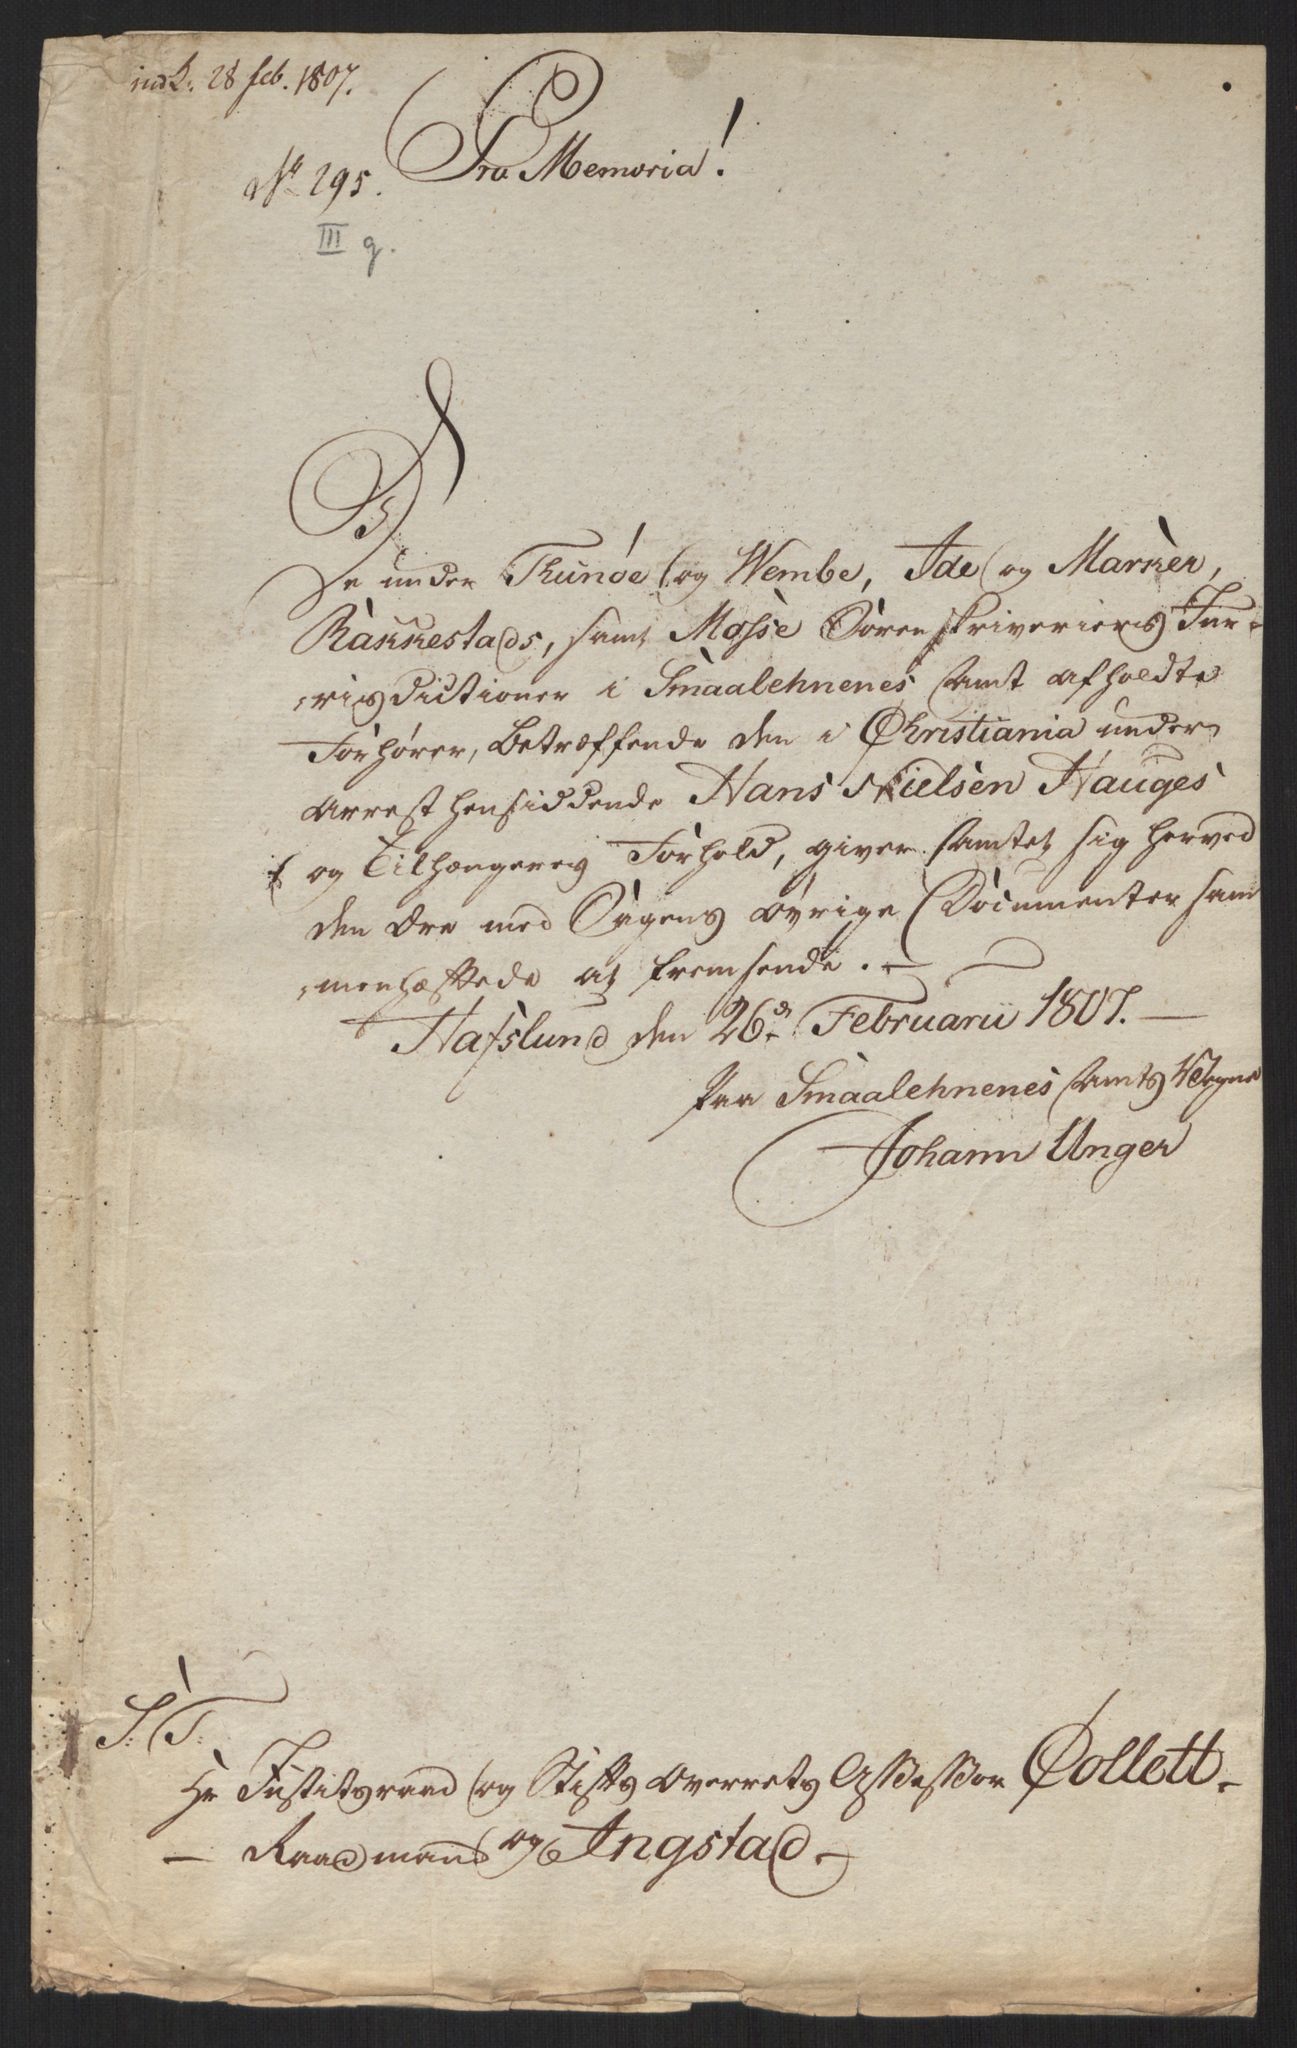 indk: 28 feb. 1807.
Pro Memoria!
No 295.
III g.
De under Thunøe og Wembe, Ide og Marker,
Rakkestads, samt Mosse Sorenskriveriers Jur=
=risdictioner i Smaalehnenes Amt afholdte
Forhører, betræffende den i Christiania under
Arrest hensiddende Hans Nielsen Hauges
og Tilhængeres Forhold, giver Amtet sig herved
den Ære med Sagens øvrige Documenter sam
=menhæftede at fremsende. —
Hafslund den 26de Februarii 1807. —
Paa Smaalehnenes Amts Vegne
Johann Unger
S: T:
Hr Justitsraad og Stifts Overrets Assessor Collett.
— Raadmand og Ingstad. —